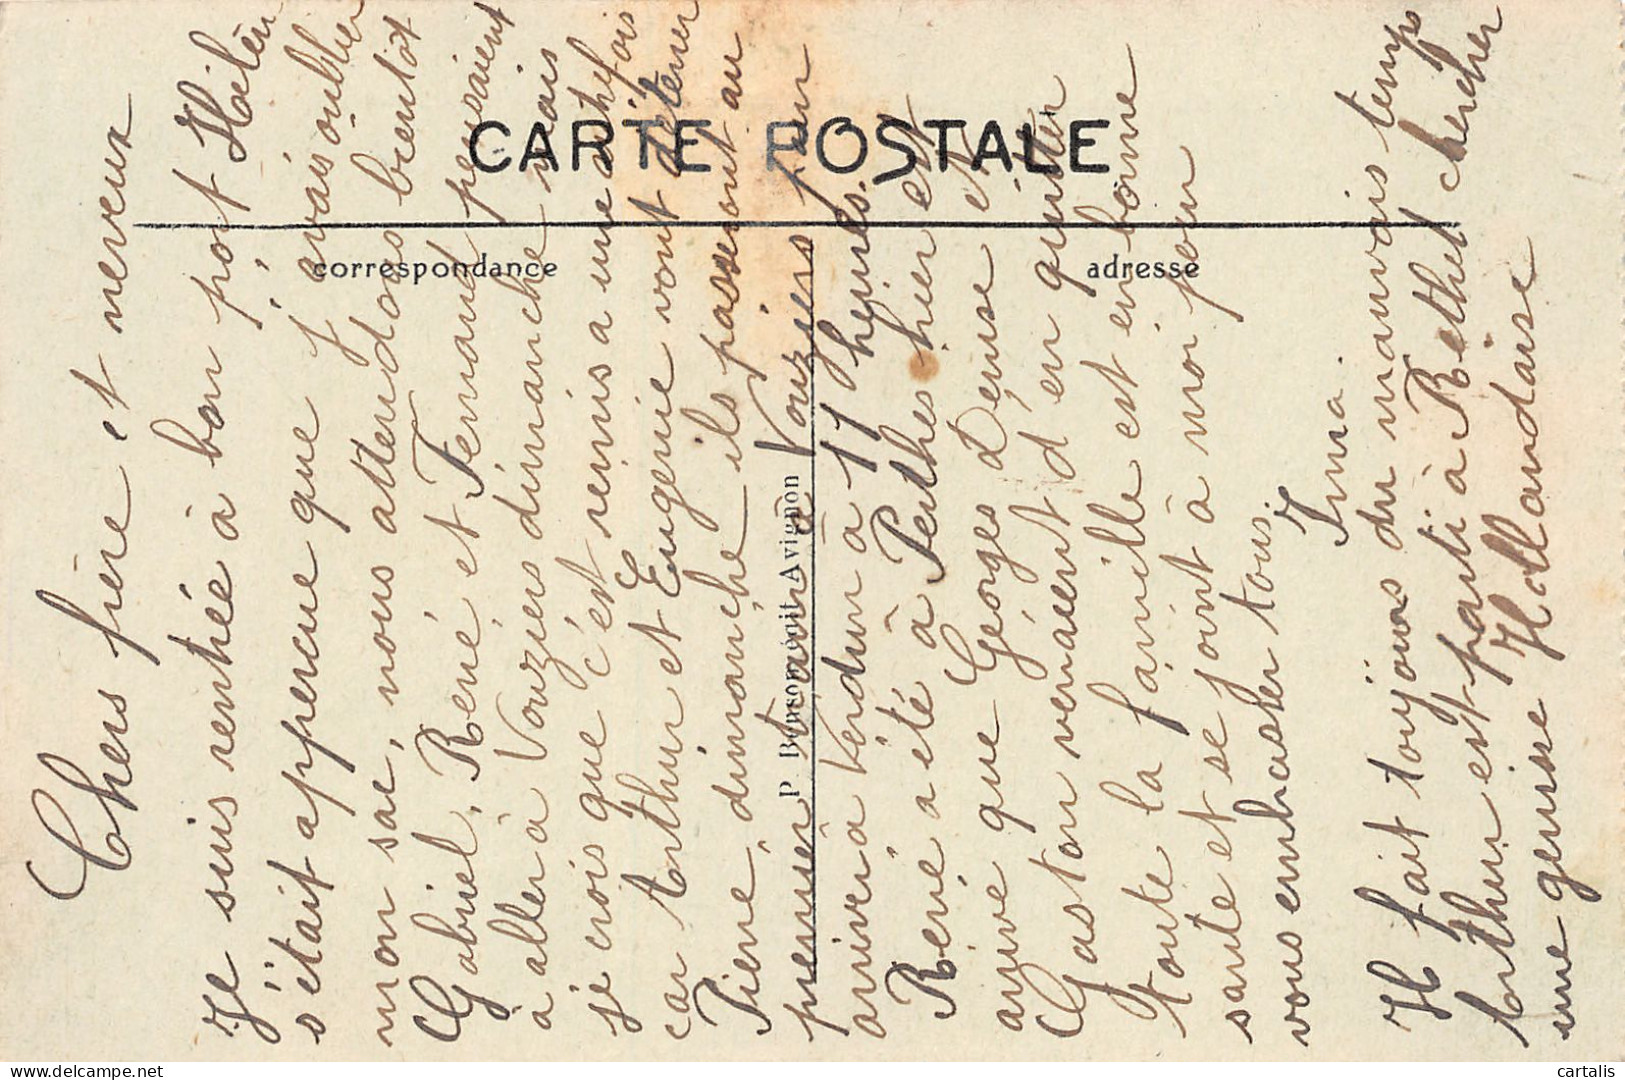 CARTE POSTALE
correspondance
adresse
Chers frère et neveux
Je suis rentrée à bon port Hélèn
s'était apperçue que j'avais oublier
mon sac, nous attendons bientôt
Gabriel, René et Fernand pensaient
à aller à Vouziers dimanche mais
je crois que c'est remis a une autre fois
car Arthur et Eugenie vont déterrer
Pierre, dimanche ils passeront au
premier train à Vouziers pour
arriver à Verdun à 11 heures.
René a été à Perthes hier et
arrivé que Georges Denise et
Gaston venaient d'en quitter
toute la famille est en bonne
sante et se joint à moi pour
vous embrasser tous.
Irma.
Il fait toujours du mauvais temps
Arthur est parti à Rethel chercher
une genisse Hollandaise
Avignon
cartalis